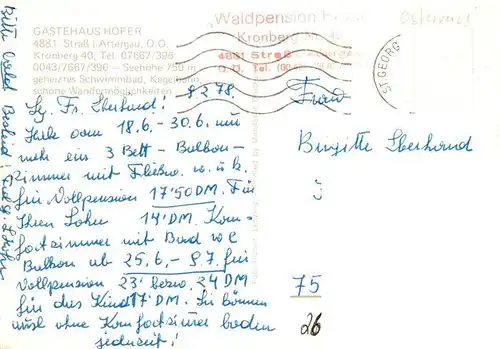 GÄSTEHAUS HÖFER
4881 Straß i. Attergau, O.Ö.
Kronberg 40, Tel. 07667/396
0043/7667/396 — Seehöhe 750 m
geheiztes Schwimmbad, Kegelbahn,
schöne Wandermöglichkeiten
"Waldpension
Kronberg
4881 Straß
O.Ö. Tel.
Österreich
ST. GEORG
Bitte bald Bescheid!
8.2.78.
Sg. Fr. Eberhard!
Habe vom 18.6. - 30.6. nur
mehr ein 3 Bett - Balkon-
zimmer mit Fließw. w. u. k.
für Vollpension 17'50 DM. Für
Ihren Sohn 14' DM. Kom-
fortzimmer mit Bad WC
Balkon ab 25.6. - 9.7. für
Vollpension 23' bezw. 24 DM
für das Kind 17' DM. Sie können
auch ohne Komfortzimmer baden
jederzeit!
Frau
Brigitte Eberhard
75
26